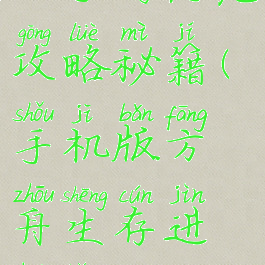 gōng lüè mì jí
攻略秘籍(
shǒu jī bǎn fāng
手机版方
zhōu shēng cún jìn
舟生存进